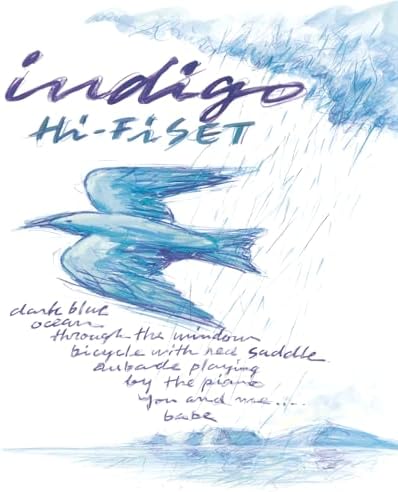 indigo
Hi-FiSET
dark blue
ocean
through the window
bicycle with red saddle
aubade playing
by the piano
you and me....
babe